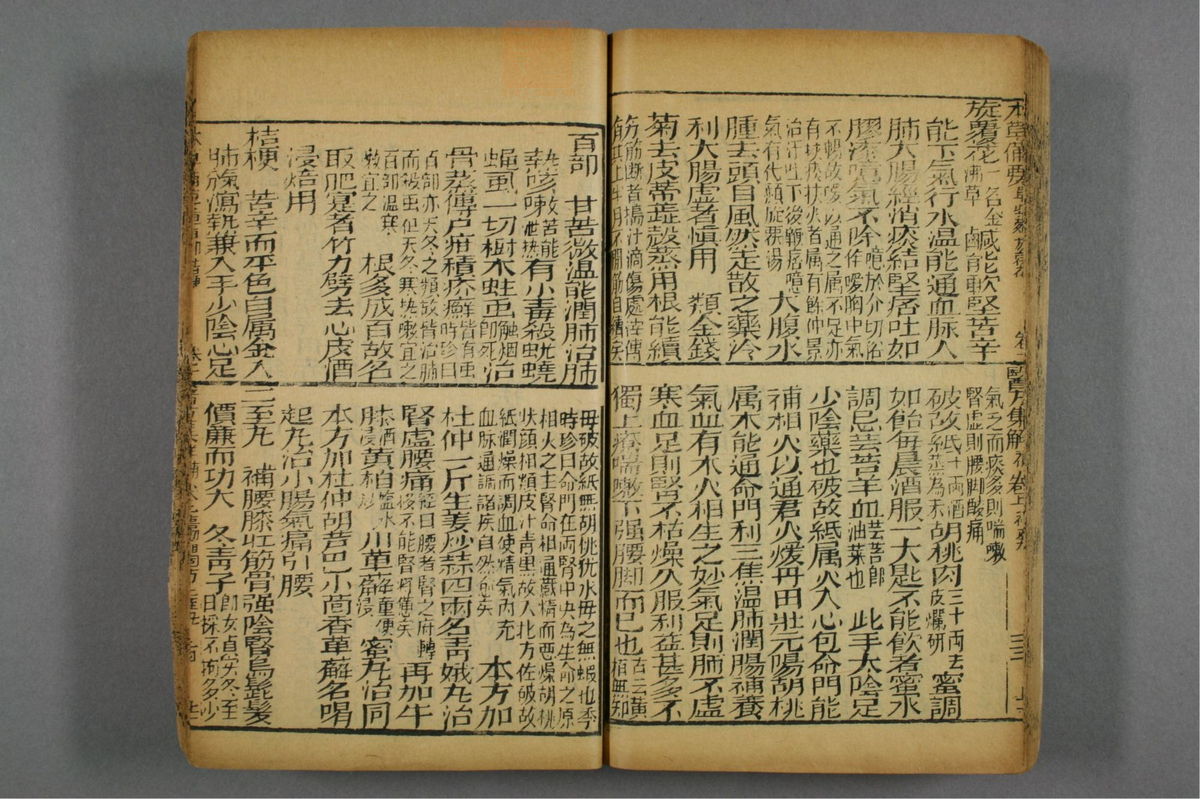 本草備要
旋覆花 一名金沸草 鹹能軟堅苦辛
能下氣行水温能通血脉入
肺大腸經消痰結堅痞吐如
膠漆噫氣不除 噫於介切俗作噯胸中氣
不暢故噯以通之屬不足亦
有挾痰挾火者属有餘仲景
治汗吐下後鞕痞噫
氣有代赭旋覆湯 大腹水
腫去頭目風然走散之藥冷
利大腸虛者慎用 類金錢
菊去皮蒂蕋殻蒸用根能續
筋 筋断者搗汁滴傷處滓傅
日不開筋自續矣
醫方集解
氣乏而痰多則喘嗽
腎虛則腰脚酸痛
破故紙 十両酒 胡桃肉 三十両去皮爛研 蜜調
如飴每晨酒服一大匙不能飲者蜜水
調忌芸薹羊血 芸薹即油菜也 此手太陰足
少陰藥也破故紙属火入心包命門能
補相火以通君火煖丹田壯元陽胡桃
属木能通命門利三焦温肺潤腸補養
氣血有木火相生之妙氣足則肺不虛
寒血足則腎不枯燥久服利益甚多不
獨上療喘嗽下强腰脚而已也 古云黄栢無知
百部 甘苦微温能潤肺治肺
熱咳嗽 苦能泄熱 有小毒殺蚘蟯
蠅虱一切樹木蛀虫 觸烟即死 治
骨蒸傳尸疳積疥癬 皆有虫時珍曰
百部亦天冬之類故皆治肺
而殺虫但天冬寒熱嗽宜之
百部温寒嗽宜之 根多成百故名
取肥實者竹刀劈去心皮酒
浸焙用
桔梗 苦辛而平色白属金入
肺氣瀉熱兼入手少陰心足
毋破故紙無胡桃犹水毋之無蝦也李
時珍曰命門在両腎中央為生命之原
相火之主腎命相通藏精而惡燥胡桃
狀頭相類皮汁青黒故入北方佐破故
紙潤燥而調血使精氣内充
血脉通調諸疾自然愈矣 本方加
杜仲一斤生姜炒蒜四両名青娥丸治
腎虛腰痛 經曰腰者腎之府轉揺不能腎將憊矣 再加牛
膝 酒浸 黄栢 塩水炒 川萆薢 蜜丸治同
本方加杜仲胡芦巴小茴香萆薢名喝
起丸治小腸氣痛引腰
價廉而功大 冬青子 即女貞實冬至日採不拘多少